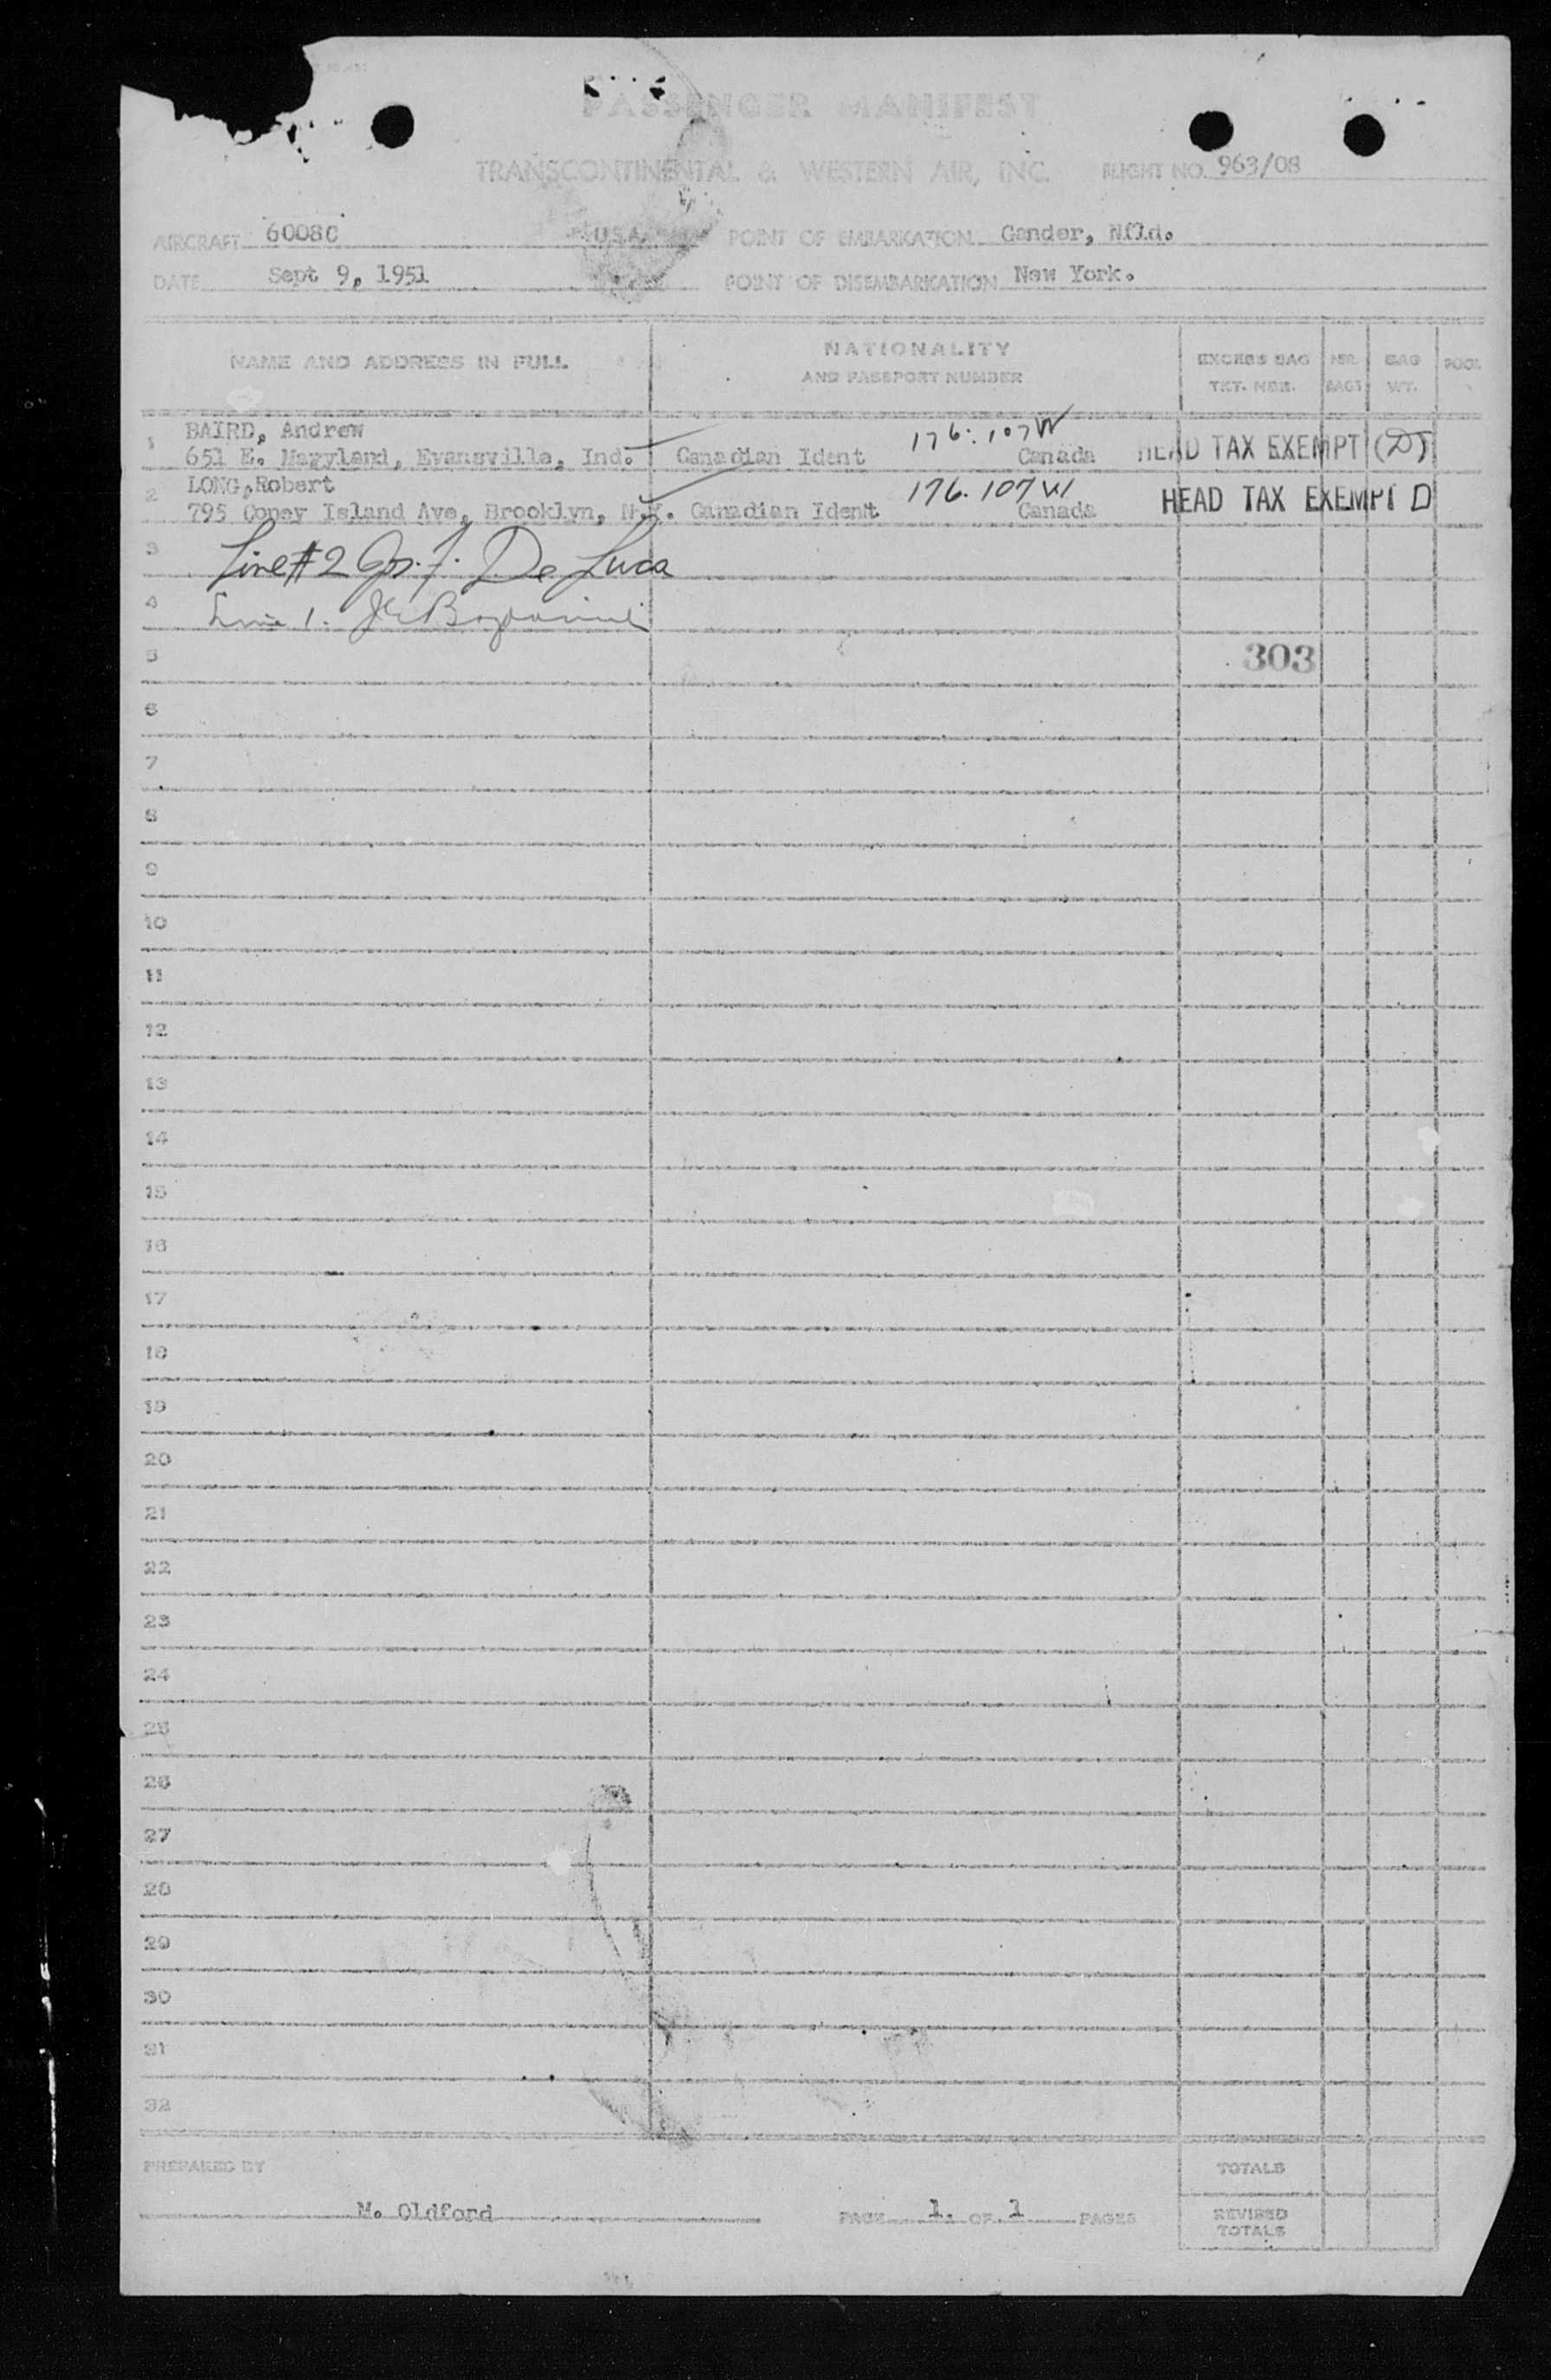 PASSENGER MANIFEST
TRANSCONTINENTAL & WESTERN AIR, INC. FLIGHT NO. 963/08
AIRCRAFT 6008C U.S.A. POINT OF EMBARKATION Gander, Nfld.
DATE Sept 9, 1951 POINT OF DISEMBARKATION New York.
NAME AND ADDRESS IN FULL NATIONALITY AND PASSPORT NUMBER EXCESS BAG TKT. NBR. BAGS BAG WT. POOL
1 BAIRD, Andrew 176.107W
651 E. Maryland, Evansville, Ind. Canadian Ident Canada HEAD TAX EXEMPT (D)
2 LONG, Robert 176.107W
795 Coney Island Ave, Brooklyn, N.Y. Canadian Ident Canada HEAD TAX EXEMPT D
3 Line #2 Jos. F. De Luca
4 Line 1.
5 303
6
7
8
9
10
11
12
13
14
15
16
17
18
19
20
21
22
23
24
25
26
27
28
29
30
31
32
PREPARED BY TOTALS
M. Oldford PAGE 1. OF 1 PAGES REVISED TOTALS